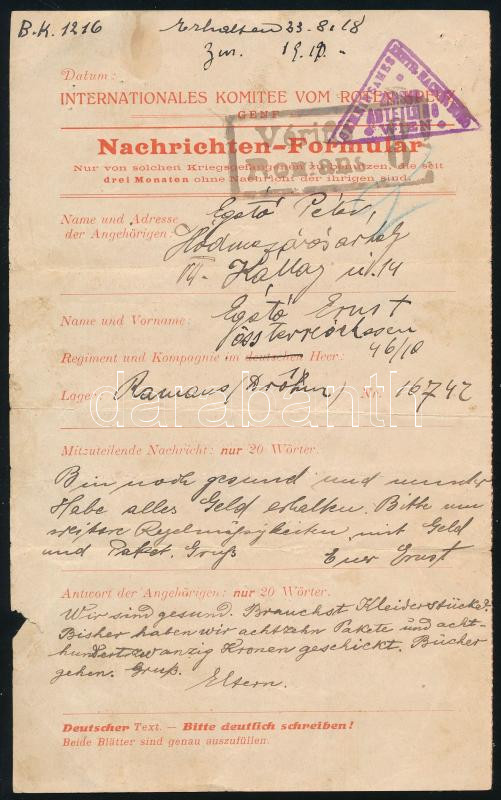 B.K. 1216
Erhalten 23.8.18
Datum:
INTERNATIONALES KOMITEE VOM ROTEN KREUZ
GENF
Nachrichten-Formular
Nur von solchen Kriegsgefangenen zu benutzen, die seit
drei Monaten ohne Nachricht der ihrigen sind.
ABTEILUNG
WIEN
Vérifié
Romans
Name und Adresse
der Angehörigen: Egető Péter,
Hódmezővásárhely
VII. Kállay ut. 14
Name und Vorname: Egető Ernst
Regiment und Kompagnie im deutschen Heer: 46/10
Lager: Romans (Drôme) Nr. 16742
darabanth
Mitzuteilende Nachricht: nur 20 Wörter.
Bin noch gesund und munter
Habe alles Geld erhalten. Bitte um
weitere Regelmäsigkeiten mit Geld
und Paket. Gruß Euer Ernst
Antwort der Angehörigen: nur 20 Wörter.
Wir sind gesund. Brauchst Kleiderstücke?
Bisher haben wir achtzehn Pakete und acht-
hundertzwanzig Kronen geschickt. Bücher
gehen. Gruß.
Eltern.
Deutscher Text. — Bitte deutlich schreiben!
Beide Blätter sind genau auszufüllen.